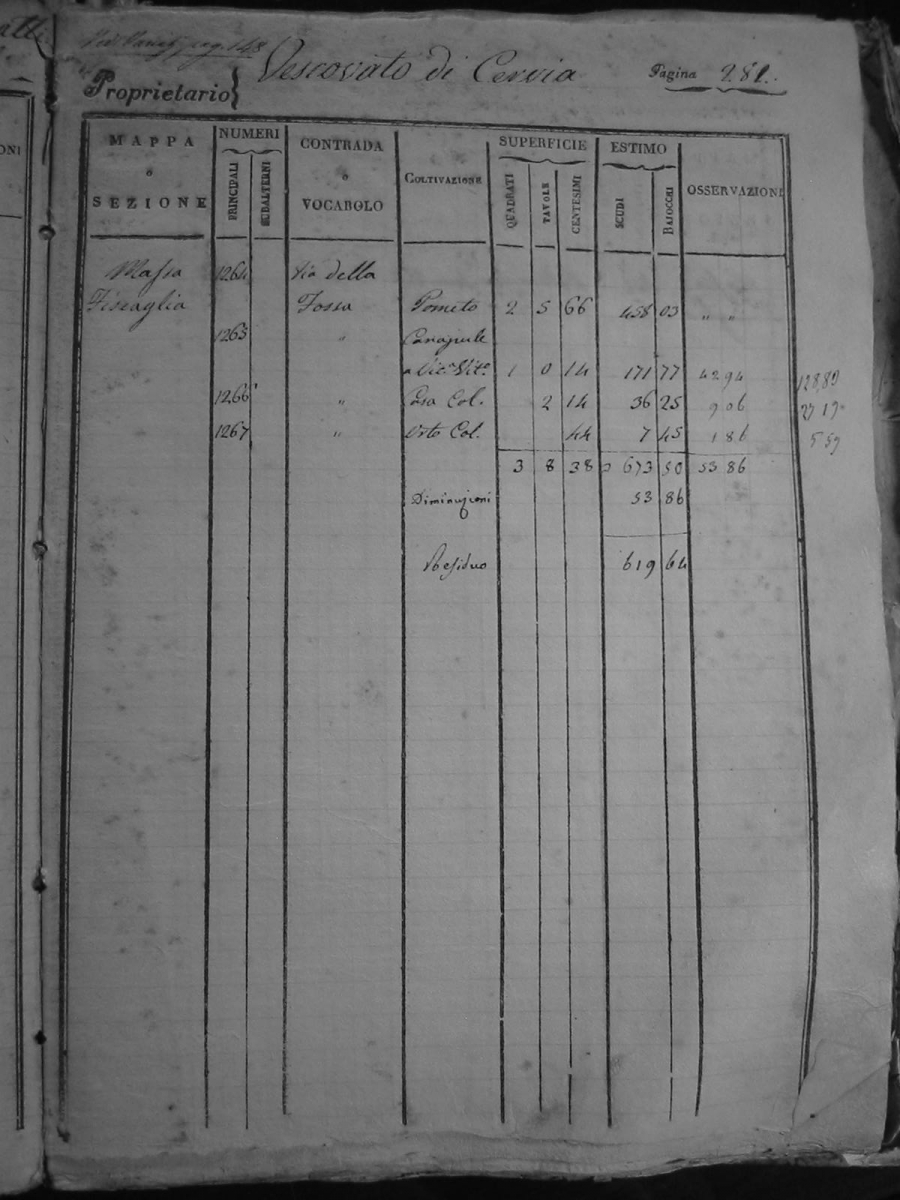 pag. 148
Proprietario} Vescovato di Cervia Pagina 281.
MAPPA o SEZIONE
NUMERI
PRINCIPALI SUBALTERNI
CONTRADA o VOCABOLO
COLTIVAZIONE
SUPERFICIE
QUADRATI TAVOLE CENTESIMI
ESTIMO
SCUDI BAIOCCHI
OSSERVAZIONI
Massa 1264 Via della
Fiscaglia Fossa Pometo 2 5 66 458 03 „ „
1263 „ Canapule
a Vit.ⁿ Vit.ᵉ 1 0 14 171 77 42 94 128,83
1266 „ Casa Col. 2 14 36 25 9 06 27 19
1267 „ Orto Col. 44 7 45 1 86 5 59
3 8 38 673 50 53 86
Diminuzioni 53 86
Residuo 619 64